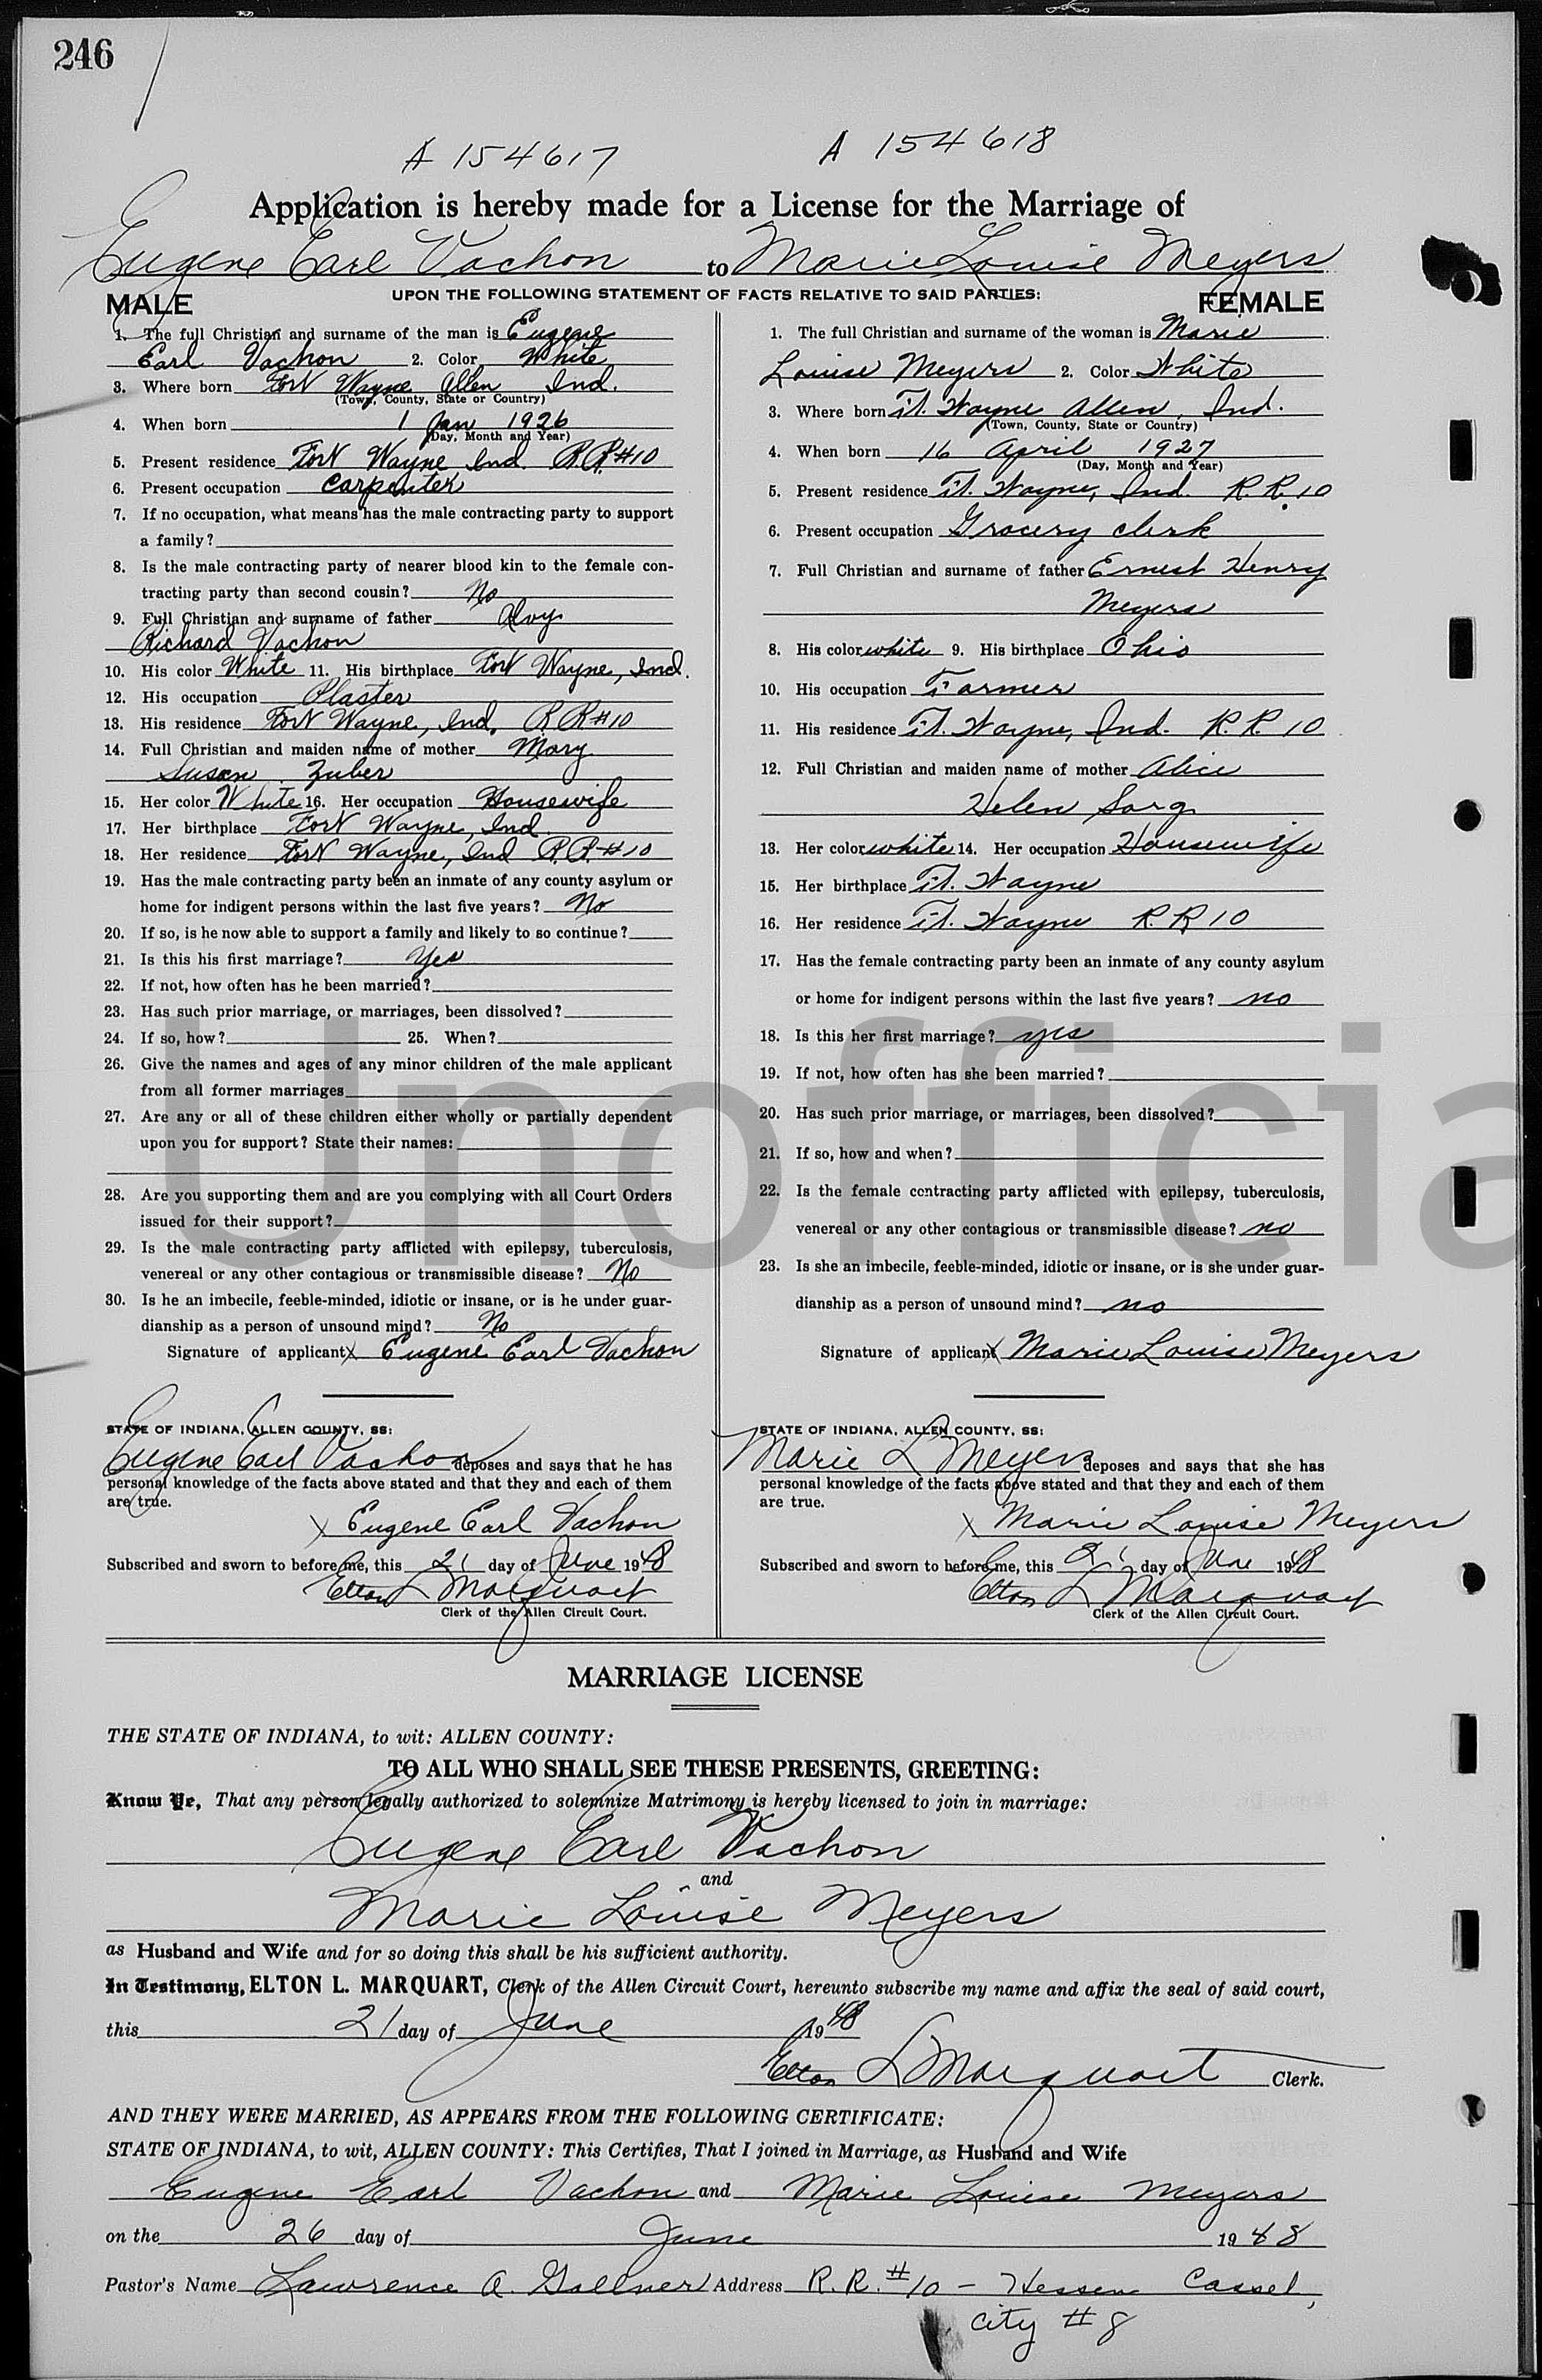 246
A 154617
A 154618
Application is hereby made for a License for the Marriage of
Eugene Earl Vachon to Marie Louise Meyers
UPON THE FOLLOWING STATEMENT OF FACTS RELATIVE TO SAID PARTIES:
MALE
1. The full Christian and surname of the man is Eugene
Earl Vachon 2. Color White
3. Where born Fort Wayne Allen Ind.
(Town, County, State or Country)
4. When born 1 Jan 1926
(Day, Month and Year)
5. Present residence Fort Wayne Ind. R.R.#10
6. Present occupation Carpenter
7. If no occupation, what means has the male contracting party to support
a family?
8. Is the male contracting party of nearer blood kin to the female con-
tracting party than second cousin? No
9. Full Christian and surname of father
Richard Vachon
10. His color White 11. His birthplace Fort Wayne, Ind.
12. His occupation Plaster
13. His residence Fort Wayne, Ind. R.R#10
14. Full Christian and maiden name of mother Mary
Susan Zuber
15. Her color White 16. Her occupation Housewife
17. Her birthplace Fort Wayne, Ind
18. Her residence Fort Wayne, Ind R.R.#10
19. Has the male contracting party been an inmate of any county asylum or
home for indigent persons within the last five years? No
20. If so, is he now able to support a family and likely to so continue?
21. Is this his first marriage? Yes
22. If not, how often has he been married?
23. Has such prior marriage, or marriages, been dissolved?
24. If so, how? 25. When?
26. Give the names and ages of any minor children of the male applicant
from all former marriages
27. Are any or all of these children either wholly or partially dependent
upon you for support? State their names:
28. Are you supporting them and are you complying with all Court Orders
issued for their support?
29. Is the male contracting party afflicted with epilepsy, tuberculosis,
venereal or any other contagious or transmissible disease? No
30. Is he an imbecile, feeble-minded, idiotic or insane, or is he under guar-
dianship as a person of unsound mind? No
Signature of applicant X Eugene Earl Vachon
STATE OF INDIANA, ALLEN COUNTY, SS:
Eugene Earl Vachon deposes and says that he has
personal knowledge of the facts above stated and that they and each of them
are true.
X Eugene Earl Vachon
Subscribed and sworn to before me, this 21 day of June 1948
Elton L Marquart
Clerk of the Allen Circuit Court.
FEMALE
1. The full Christian and surname of the woman is Marie
Louise Meyers 2. Color White
3. Where born Ft. Wayne Allen, Ind.
(Town, County, State or Country)
4. When born 16 April 1927
(Day, Month and Year)
5. Present residence Ft. Wayne, Ind. R.R. 10
6. Present occupation Grocery clerk
7. Full Christian and surname of father Ernest Henry
Meyers
8. His color white 9. His birthplace Ohio
10. His occupation Farmer
11. His residence Ft. Wayne, Ind. R.R. 10
12. Full Christian and maiden name of mother Alice
Helen Sorg
13. Her color white 14. Her occupation Housewife
15. Her birthplace Ft. Wayne
16. Her residence Ft. Wayne R.R 10
17. Has the female contracting party been an inmate of any county asylum
or home for indigent persons within the last five years? no
18. Is this her first marriage? yes
19. If not, how often has she been married?
20. Has such prior marriage, or marriages, been dissolved?
21. If so, how and when?
22. Is the female contracting party afflicted with epilepsy, tuberculosis,
venereal or any other contagious or transmissible disease? no
23. Is she an imbecile, feeble-minded, idiotic or insane, or is she under guar-
dianship as a person of unsound mind? no
Signature of applicant X Marie Louise Meyers
STATE OF INDIANA, ALLEN COUNTY, SS:
Marie L Meyers deposes and says that she has
personal knowledge of the facts above stated and that they and each of them
are true.
X Marie Louise Meyers
Subscribed and sworn to before me, this 21 day of June 1948
Elton L Marquart
Clerk of the Allen Circuit Court.
Unofficia
MARRIAGE LICENSE
THE STATE OF INDIANA, to wit: ALLEN COUNTY:
TO ALL WHO SHALL SEE THESE PRESENTS, GREETING:
Know Ye, That any person legally authorized to solemnize Matrimony is hereby licensed to join in marriage:
Eugene Earl Vachon
and
Marie Louise Meyers
as Husband and Wife and for so doing this shall be his sufficient authority.
In Testimony, ELTON L. MARQUART, Clerk of the Allen Circuit Court, hereunto subscribe my name and affix the seal of said court,
this 21 day of June 1948
Elton L Marquart Clerk.
AND THEY WERE MARRIED, AS APPEARS FROM THE FOLLOWING CERTIFICATE:
STATE OF INDIANA, to wit, ALLEN COUNTY: This Certifies, That I joined in Marriage, as Husband and Wife
Eugene Earl Vachon and Marie Louise Meyers
on the 26 day of June 1948
Pastor's Name Lawrence A. Gollner Address R.R.#10 - Hessen Cassel,
City #8